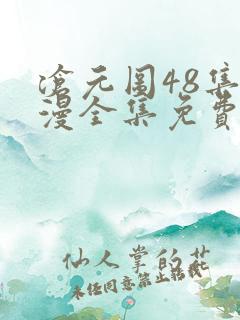 滄元圖48集
漫全集免費
仙人掌的花
未经同意禁止转载